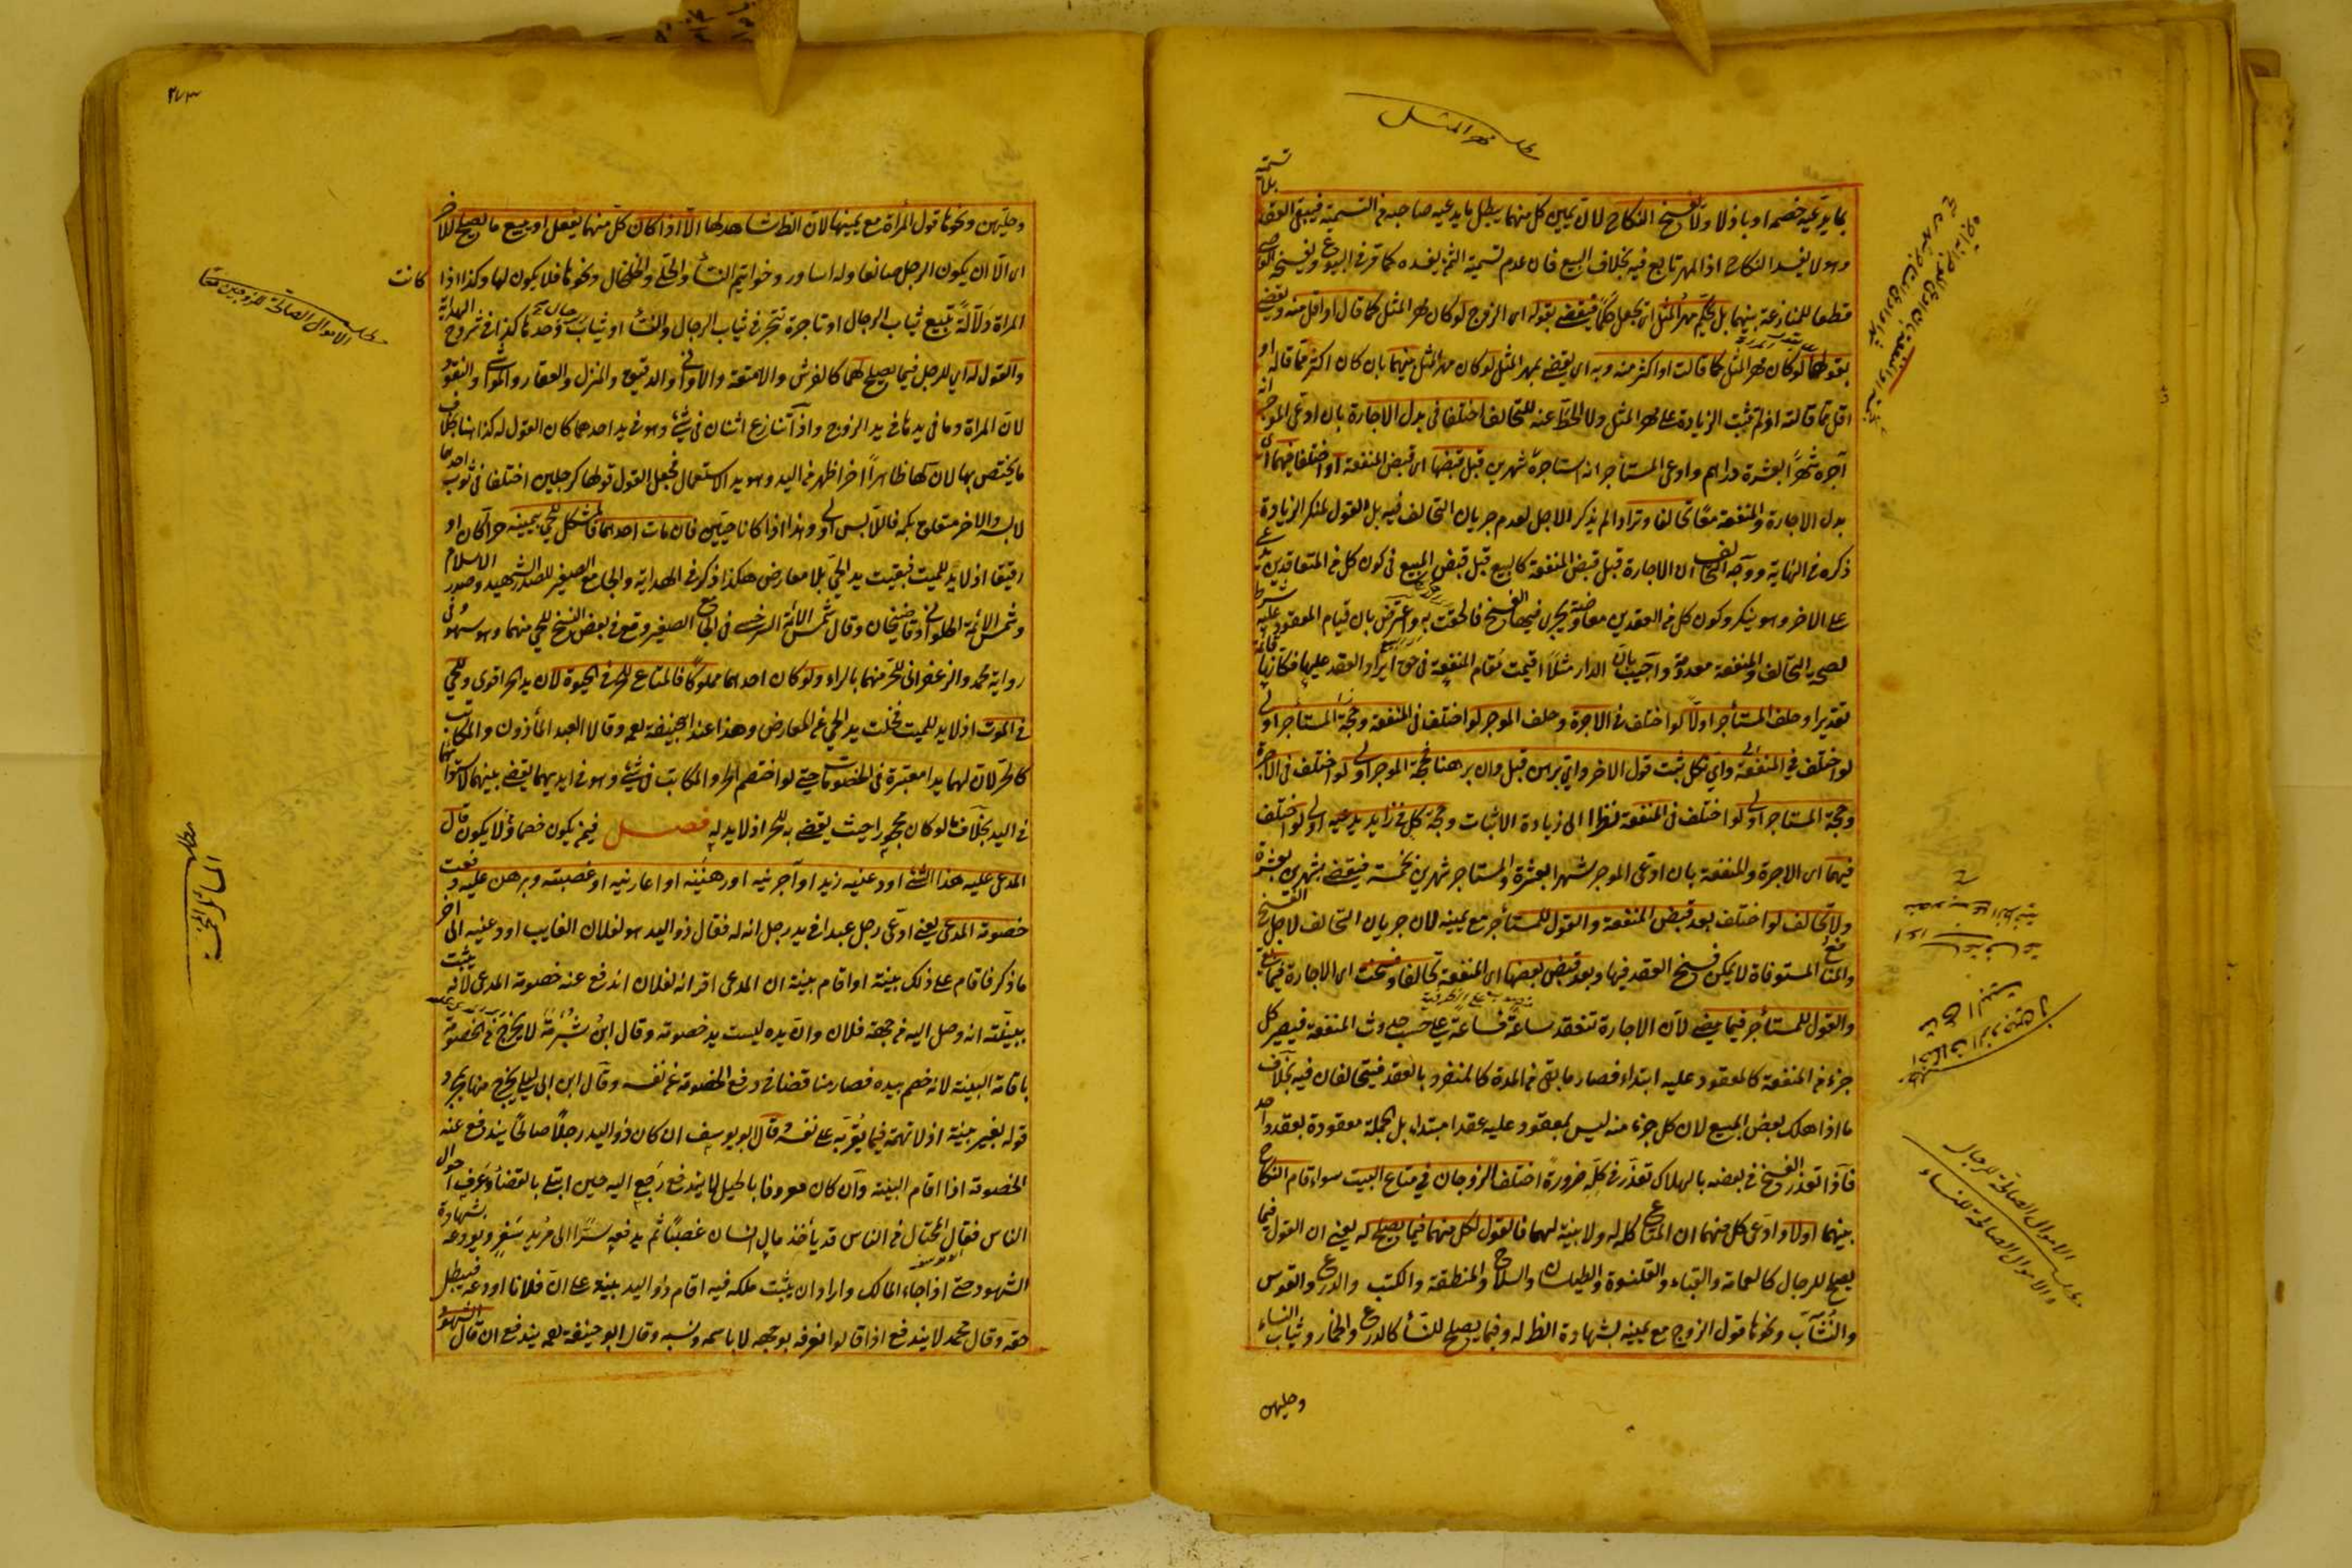 مطلب مهر المثل
بما يدعيه خصمه او باذلا ولا يفسخ النكاح لان يمين كل منهما يبطل ما يدعيه صاحبه من التسمية فيبقى العقد بلا تسمية
وهو لا يفسد النكاح اذ المهر تابع فيه بخلاف البيع فان عدم تسمية الثمن يفسده كما مر في البيوع ويفسخه القاضي
قطعا للمنازعة بينهما بل يحكم مهر المثل اي يجعل حكما فيقضي بقوله اي الزوج لو كان مهر المثل كما قال او اقل منه ويقضي
بقولها لو كان مهر المثل كما قالت او اكثر منه وبه اي يقضي بمهر المثل لو كان مهر المثل بينهما بان كان اكثر مما قاله او
اقل مما قالته اذ لم تثبت الزيادة على مهر المثل ولا الحط عنه للتحالف اختلفا في بدل الاجارة بان ادعى الموجر انه
آجره شهرا بعشرة دراهم وادعى المستأجر انه استاجره شهرين قبل قبضها اي قبض المنفعة او اختلفا فيهما اي
بدل الاجارة والمنفعة معا تحالفا وترادا لم يذكر الاجل لعدم جريان التحالف فيه بل القول لمنكر الزيادة
ذكره في النهاية ووجه التحالف ان الاجارة قبل قبض المنفعة كالبيع قبل قبض المبيع في كون كل من المتعاقدين يدعي
على الاخر وهو ينكر وكون كل من العقدين معاوضة يجري فيها الفسخ فالحقت به واعترض بان قيام المعقود عليه شرط
لصحة التحالف والمنفعة معدومة واجيب بان الدار مثلا اقيمت مقام المنفعة في حق ايراد العقد عليها فكانها قائمة
تقديرا وحلف المستأجر اولا لو اختلف في الاجرة وحلف الموجر لو اختلف في المنفعة وحجة المستأجر اولى
لو اختلف في المنفعة واي نكل ثبت قول الاخر واي برهن قبل وان برهنا فحجة الموجر اولى لو اختلف في الاجرة
وحجة المستاجر اولى لو اختلف في المنفعة نظرا الى زيادة الاثبات وحجة كل في زايد يدعيه اولى لو اختلف
فيهما اي الاجرة والمنفعة بان ادعى الموجر شهرا بعشرة والمستاجر شهرين بخمسة فيقضي بشهرين بعشرة
ولا تحالف لو اختلف بعد قبض المنفعة والقول للمستأجر مع يمينه لان جريان التحالف لاجل الفسخ
والمنافع المستوفاة لا يمكن فسخ العقد فيها وبعد قبض بعضها اي المنفعة تحالفا وفسخت اي الاجارة فيما بقي
والقول للمستأجر فيما مضى لان الاجارة تنعقد ساعة فساعة على حسب حدوث المنفعة فيصير كل
جزء من المنفعة كالمعقود عليه ابتداء فصار ما بقي من المدة كالمنفرد بالعقد فيتحالفان فيه بخلاف
ما اذا هلك بعض المبيع لان كل جزء منه ليس بمعقود عليه عقدا مبتدا بل الجملة معقودة بعقد واحد
فاذا تعذر الفسخ في بعضه بالهلاك تعذر في كله ضرورة اختلف الزوجان في متاع البيت سواء قام النكاح
بينهما اولا وادعى كل منهما ان المتاع كله له ولا بينة لهما فالقول لكل منهما فيما يصلح له يعني ان القول فيما
يصلح للرجال كالعمامة والقباء والقلنسوة والطيلسان والسلاح والمنطقة والكتب والدرع والقوس
والنشاب ونحوها قول الزوج مع يمينه بشهادة الظاهر له وفيما يصلح للنساء كالدرع والخمار وثياب النساء
وحليهن
مطلب
اختلاف الزوجين في
متاع البيت
مطلب الاموال الصالحة للرجال
والاموال الصالحة للنساء
٢٧٣
وحليهن ونحوها قول المرأة مع يمينها لان الظاهر شاهد لها الا اذا كان كل منهما يفعل او يبيع ما يصلح للآخر
اي الا ان يكون الرجل صانعا وله اساور وخواتيم النساء والحلي والخلخال ونحوها فلا يكون لها وكذا اذا كانت
المراة دلالة تبيع ثياب الرجال او تاجرة تتجر في ثياب الرجال والنساء او ثياب الرجال وحدها كذا في شروح الهداية
والقول له اي للرجل فيما يصلح لهما كالفرش والامتعة والاواني والدقيق والمنزل والعقار والمواشي والنقود
لان المراة وما في يدها في يد الزوج واذا تنازع اثنان في شئ وهو في يد احدهما كان القول له كذا هنا بخلاف
ما يختص بها لان لها ظاهرا آخر اظهر من اليد وهو يد الاستعمال فجعل القول قولها كرجلين اختلفا في ثوب احدهما
لابسه والاخر متعلق بكمه فاللابس اولى وهذا اذا كانا حيين فان مات احدهما فالمشكل للحي بيمينه حرا كان او
رقيقا اذ لا يد للميت فبقيت يد الحي بلا معارض هكذا ذكر في الهداية والجامع الصغير للصدر الشهيد وصدر الاسلام
وشمس الائمة الحلواني وقاضيخان وقال شمس الائمة السرخسي في الجامع الصغير وقع في بعض النسخ للحي منهما وهو سهو في
رواية محمد والزعفراني للحر منهما بالراء ولو كان احدهما مملوكا فالمتاع للحر في الحيوة لان يد الحر اقوى وللحي
في الموت اذ لا يد للميت فخلت يد الحي عن المعارض وهذا عند ابي حنيفة رحمه وقالا العبد المأذون والمكاتب
كالحر لان لهما يدا معتبرة في الخصومات حتى لو اختصم الحر والمكاتب في شئ وهو في ايديهما يقضى بينهما لاستوائهما
في اليد بخلاف ما لو كان محجورا حيث يقضى به للحر اذ لا يد له فصل فيمن يكون خصما ولا يكون قال
المدعى عليه هذا الشئ اودعنيه زيد او آجرنيه او رهننيه او اعارنيه او غصبته وبرهن عليه دفعت
خصومة المدعي يعني ادعى رجل عبدا في يد رجل انه له فقال ذو اليد هو لفلان الغايب اودعنيه الى آخر
ما ذكر فاقام على ذلك بينة او اقام بينة ان المدعي اقر انه لفلان اندفع عنه خصومة المدعي لانه يثبت
ببينته انه وصل اليه من جهة فلان وان يده ليست يد خصومة وقال ابن شبرمة لا يخرج من الخصومة
باقامة البينة لانه خصم بيده فصار مناقضا في دفع الخصومة عن نفسه وقال ابن ابي ليلى يخرج منها بمجرد
قوله بغير بينة اذ لا تهمة فيما يقر به على نفسه وقال ابو يوسف ان كان ذو اليد رجلا صالحا يندفع عنه
الخصومة اذا اقام البينة وان كان معروفا بالحيل لا يندفع رجع اليه حين ابتلي بالقضاء وعرف احوال
الناس فقال المحتال في الناس قد يأخذ مال انسان غصبا ثم يدفعه سرا الى مريد سفر ويودعه بشهادة
الشهود حتى اذا جاء المالك واراد ان يثبت ملكه فيه اقام ذو اليد بينة على ان فلانا اودعه فيبطل
حقه وقال محمد لا يندفع اذا قالوا نعرفه بوجهه لا باسمه ونسبه وقال ابو حنيفة رحمه يندفع ان قال الشهود
مطلب الاموال الصالحة للزوجين معا